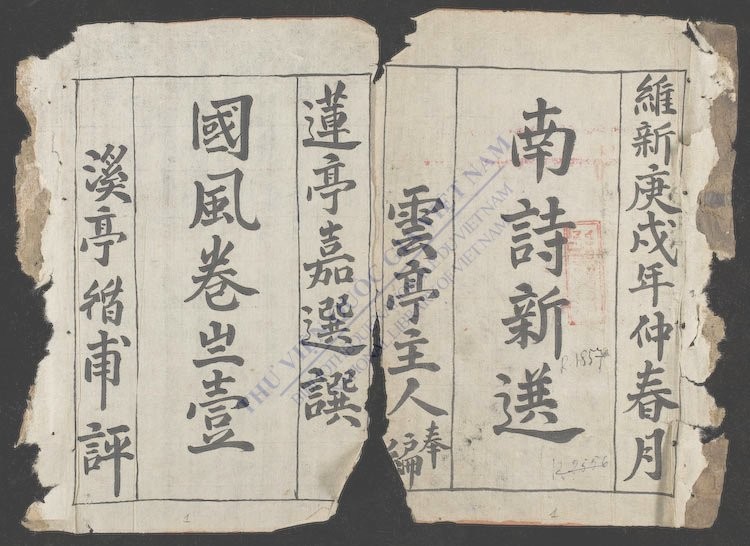 維新庚戌年仲春月
南詩新選
雲亭主人奉編
蓮亭嘉選撰
國風卷㞢壹
溪亭循甫評
THƯ VIỆN QUỐC GIA VIỆT NAM
NATIONAL LIBRARY OF VIETNAM
R.1857
1
1